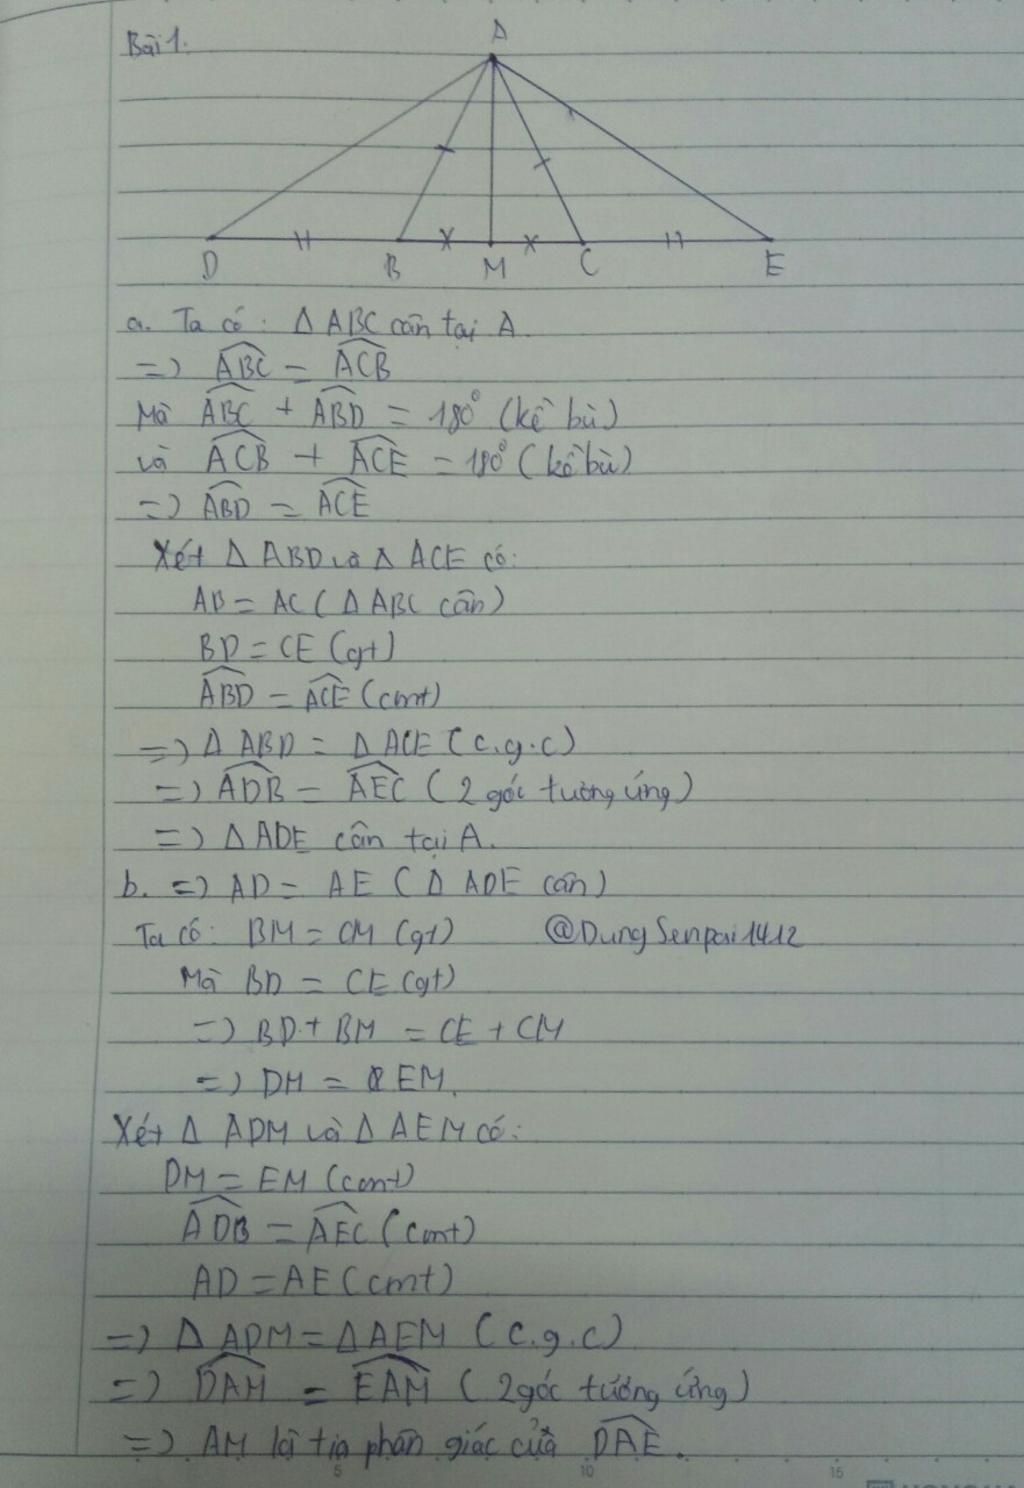 Bài 1.
A
D B M C E
a. Ta có: Δ ABC cân tại A.
=) ABC = ACB
Mà ABC + ABD = 180° (kề bù)
và ACB + ACE = 180° (kề bù)
=) ABD = ACE
Xét Δ ABD và Δ ACE có:
AB = AC (Δ ABC cân)
BD = CE (gt)
ABD = ACE (cmt)
=) Δ ABD = Δ ACE (c.g.c)
=) ADB = AEC (2 góc tương ứng)
=) Δ ADE cân tại A.
b. =) AD = AE (Δ ADE cân)
Ta có: BM = CM (gt) @DungSenpai1412
Mà BD = CE (gt)
=) BD + BM = CE + CM
=) DM = EM.
Xét Δ ADM và Δ AEM có:
DM = EM (cmt)
ADB = AEC (cmt)
AD = AE (cmt)
=) Δ ADM = Δ AEM (c.g.c)
=) DAM = EAM (2 góc tương ứng)
=) AM là tia phân giác của DAE.
5 10 15